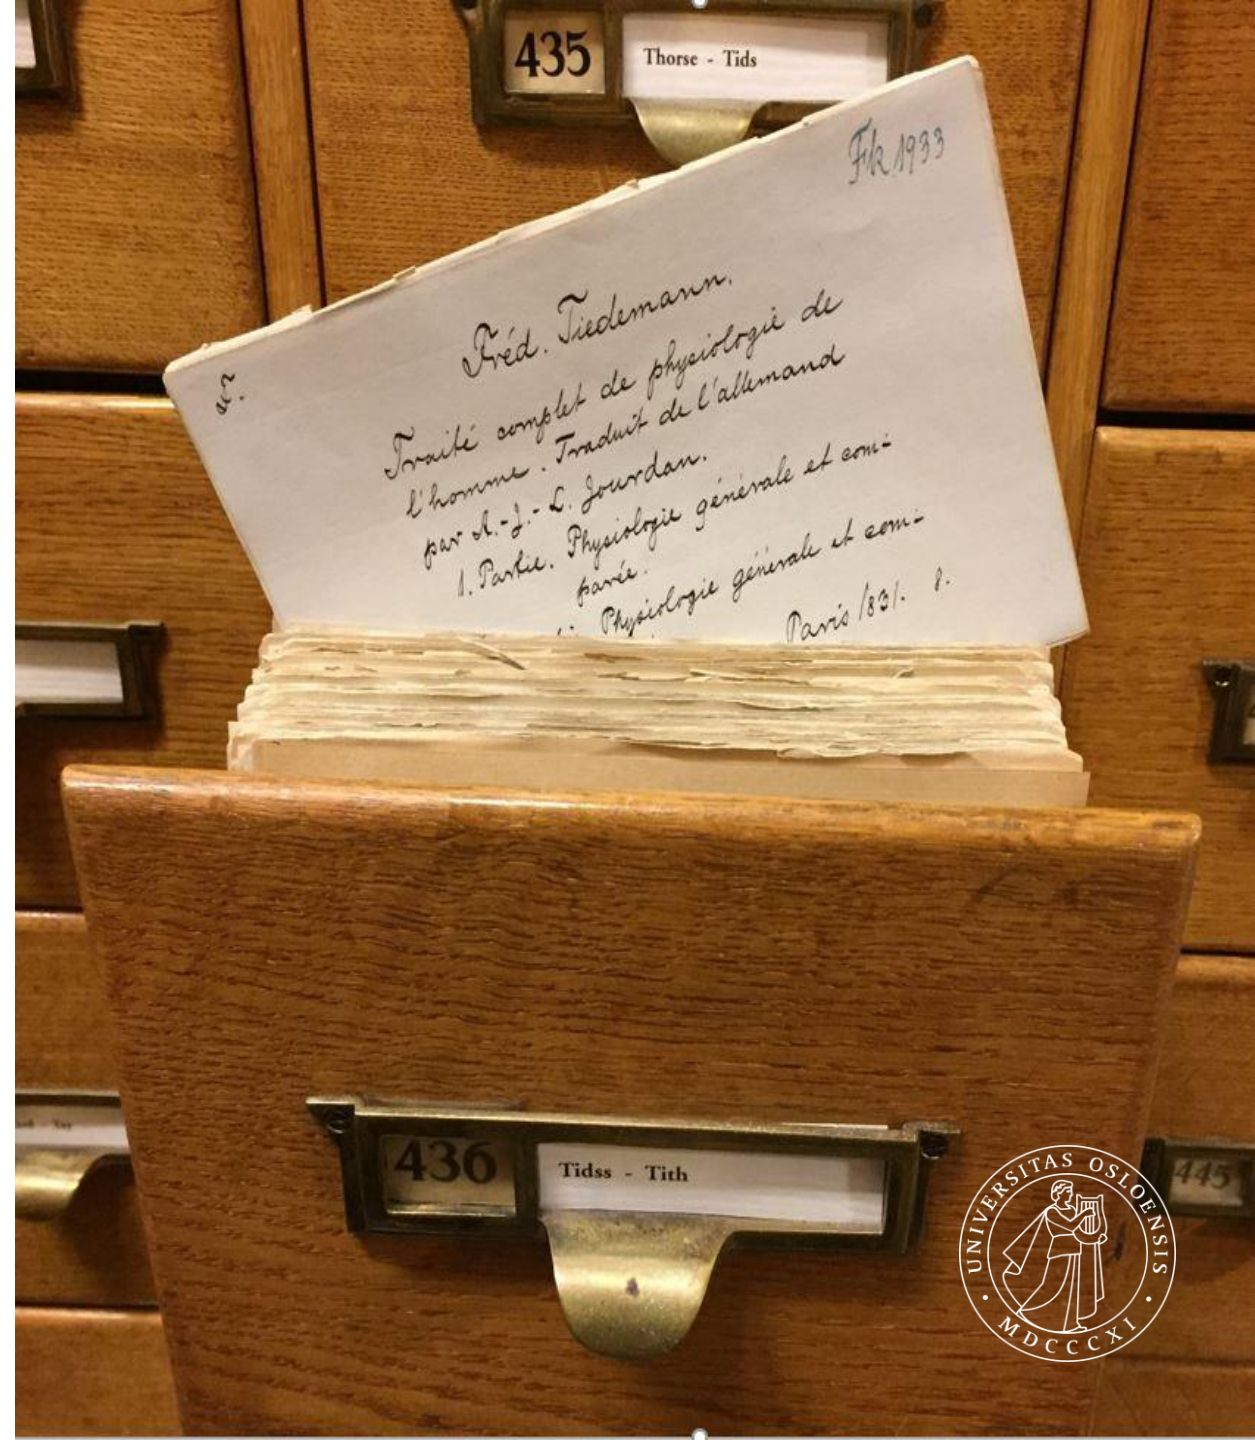 435
Thorse - Tids
Fk 1933
Fréd. Tiedemann.
Traité complet de physiologie de
l'homme. Traduit de l'allemand
par A.-J.-L. Jourdan.
1. Partie. Physiologie générale et com-
parée.
Physiologie générale et com-
Paris 1831. 8.
436
Tidss - Tith
445
UNIVERSITAS OSLOENSIS
MDCCCXI